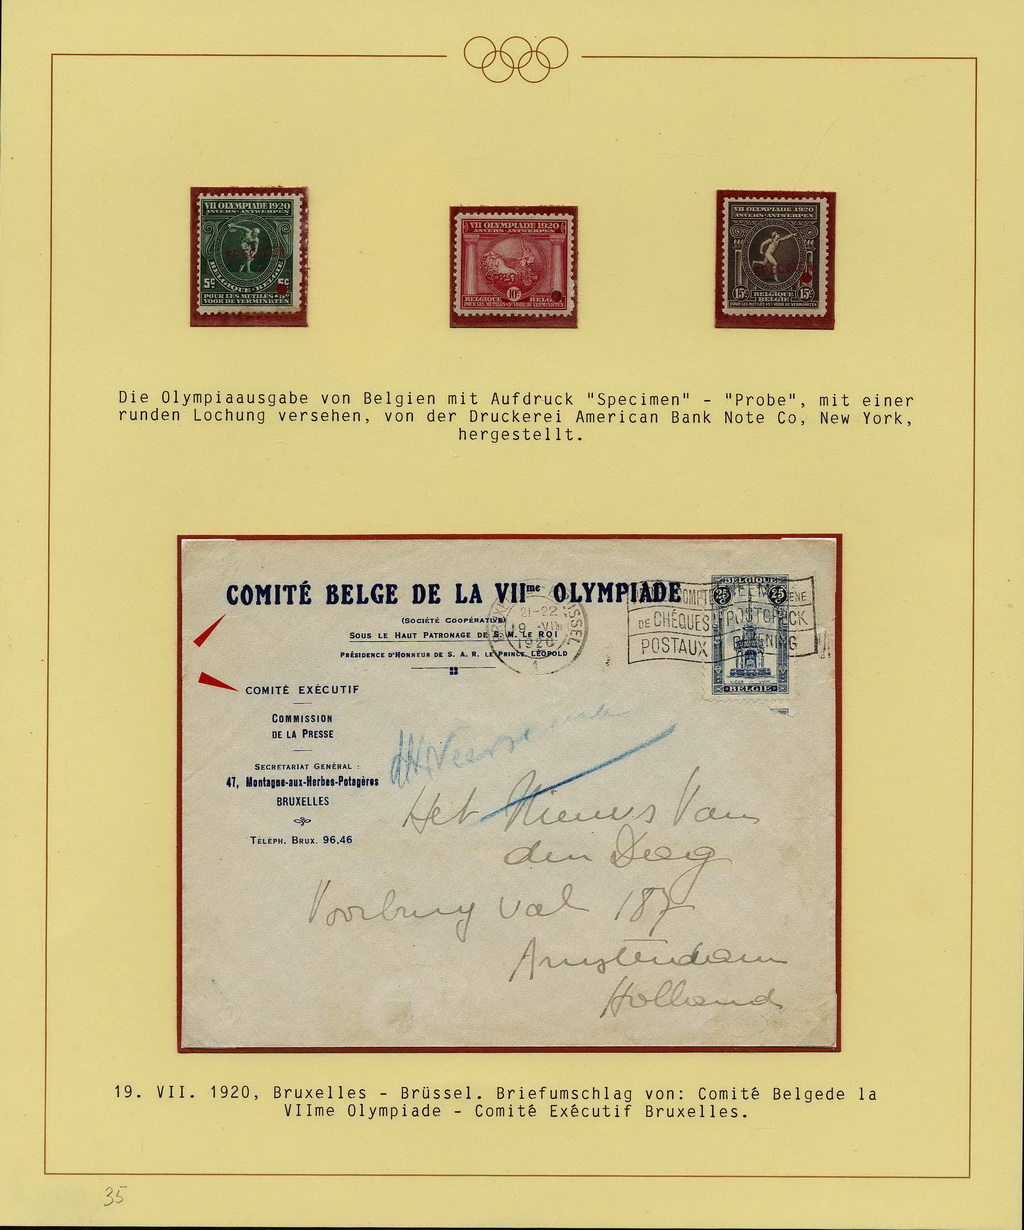 VII OLYMPIADE 1920
ANVERS-ANTWERPEN
SPECIMEN
BELGIQUE-BELGIE
5c 5c
POUR LES MUTILÉS+5c
VOOR DE VERMINKTEN
VII OLYMPIADE 1920
ANVERS-ANTWERPEN
SPECIMEN
10c
BELGIQUE BELGIE
POUR LES MUTILÉS+5c VOOR DE VERMINKTEN
VII OLYMPIADE 1920
ANVERS-ANTWERPEN
SPECIMEN
15c BELGIQUE 15c
BELGIË
POUR LES MUTILÉS+5c VOOR DE VERMINKTEN
Die Olympiaausgabe von Belgien mit Aufdruck "Specimen" - "Probe", mit einer
runden Lochung versehen, von der Druckerei American Bank Note Co, New York,
hergestellt.
COMITÉ BELGE DE LA VIIme OLYMPIADE
(SOCIÉTÉ COOPÉRATIVE)
SOUS LE HAUT PATRONAGE DE S. M. LE ROI
PRÉSIDENCE D'HONNEUR DE S. A. R. LE PRINCE LÉOPOLD
21-22
19 VII
1920
1
BELGIQUE
25 25
DE CHÈQUES POSTCHECK
POSTAUX REKENING
BELGIE
COMITÉ EXÉCUTIF
COMMISSION
DE LA PRESSE
SECRETARIAT GENÉRAL :
47, Montagne-aux-Herbes-Potagères
BRUXELLES
TÉLÉPH. BRUX. 96,46
Het Nieuws Van
den Dag
Voorburgwal 187
Amsterdam
Holland
19. VII. 1920, Bruxelles - Brüssel. Briefumschlag von: Comité Belgede la
VIIme Olympiade - Comité Exécutif Bruxelles.
35